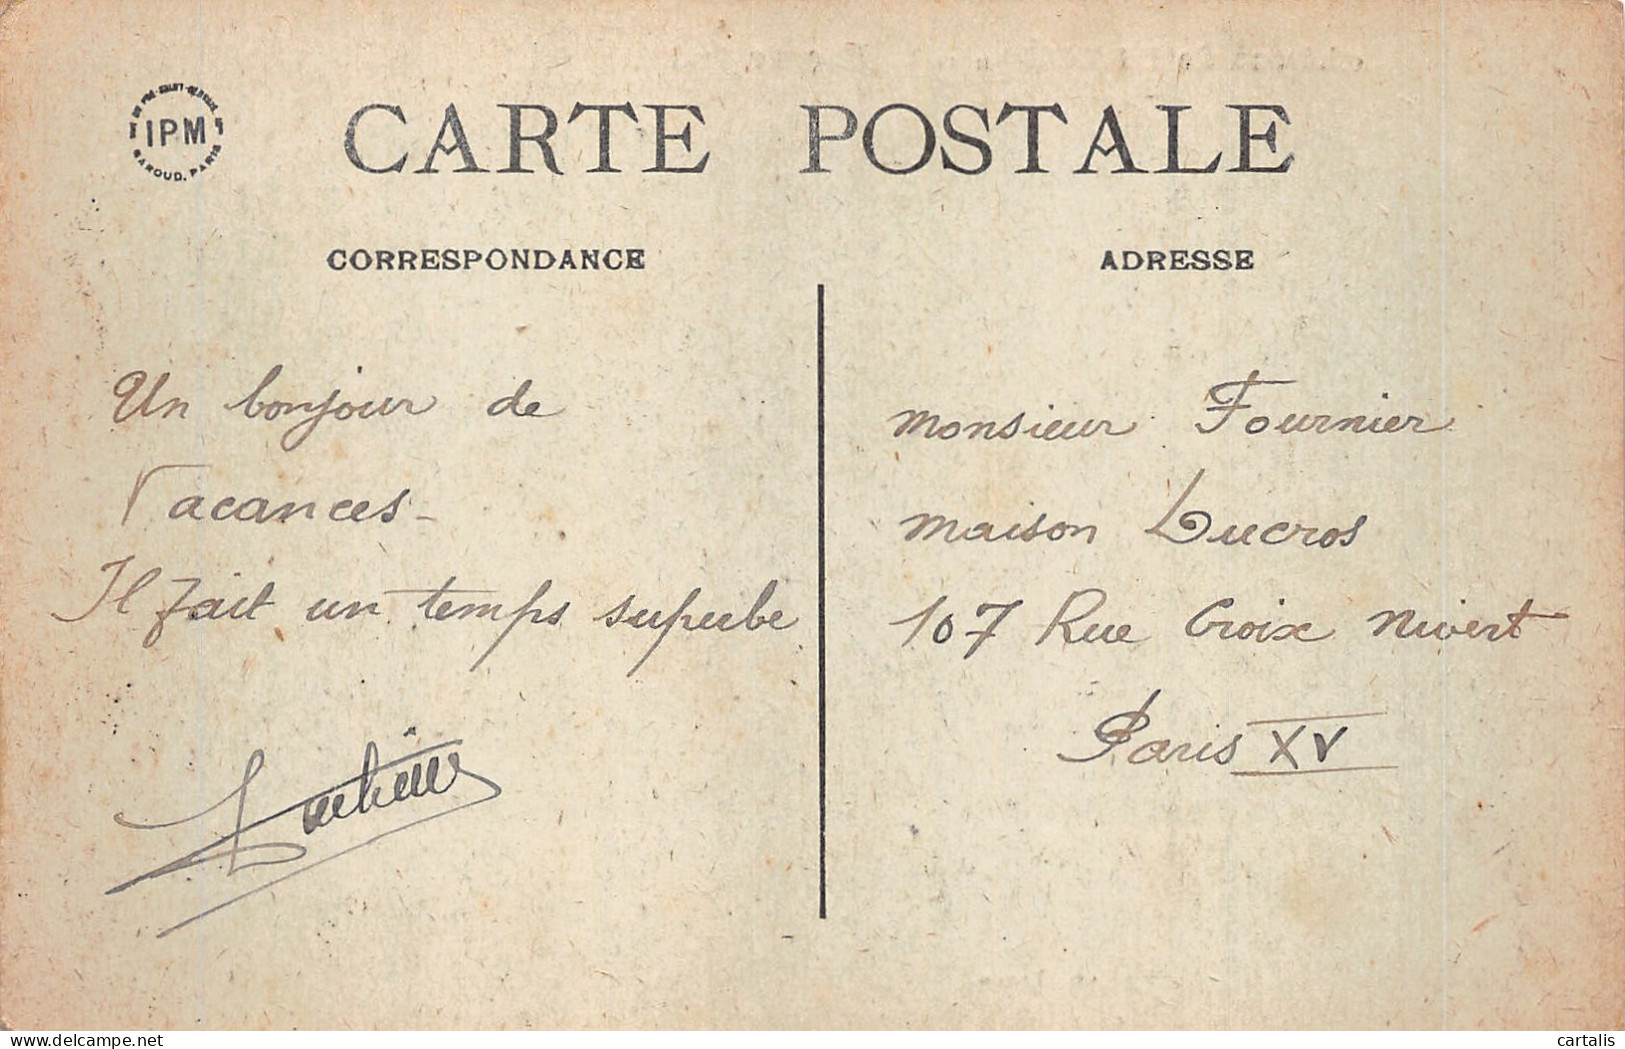 IPM
BAROUD. PARIS
CARTE POSTALE
CORRESPONDANCE
Un bonjour de
Vacances -
Il fait un temps superbe
ADRESSE
Monsieur Fournier
maison Lucros
107 Rue Croix Nivert
Paris XV
cartalis
delcampe.net